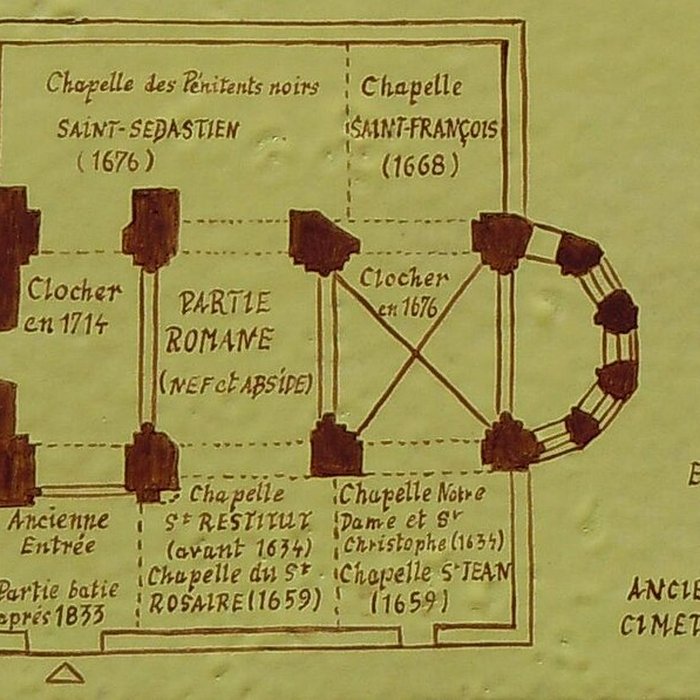 Chapelle des Pénitents noirs
SAINT-SEBASTIEN
(1676)
Chapelle
SAINT-FRANÇOIS
(1668)
Clocher
en 1714
PARTIE
ROMANE
(NEF et ABSIDE)
Clocher
en 1676
Ancienne
Entrée
Partie batie
aprés 1833
Chapelle
St RESTITUT
(avant 1634)
Chapelle du St
ROSAIRE (1659)
Chapelle Notre
Dame et St
Christophe (1634)
Chapelle St JEAN
(1659)